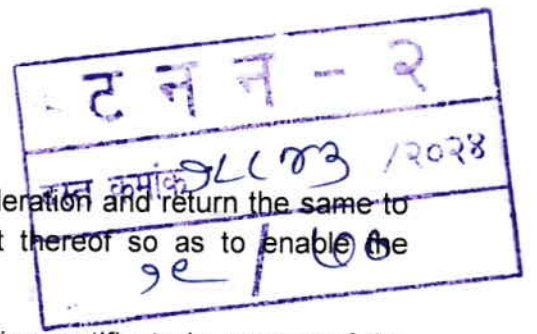 ट न न - २
दस्त क्रमांक १८८४३ /२०२४
deration and return the same to
t thereof so as to enable the
१९ /